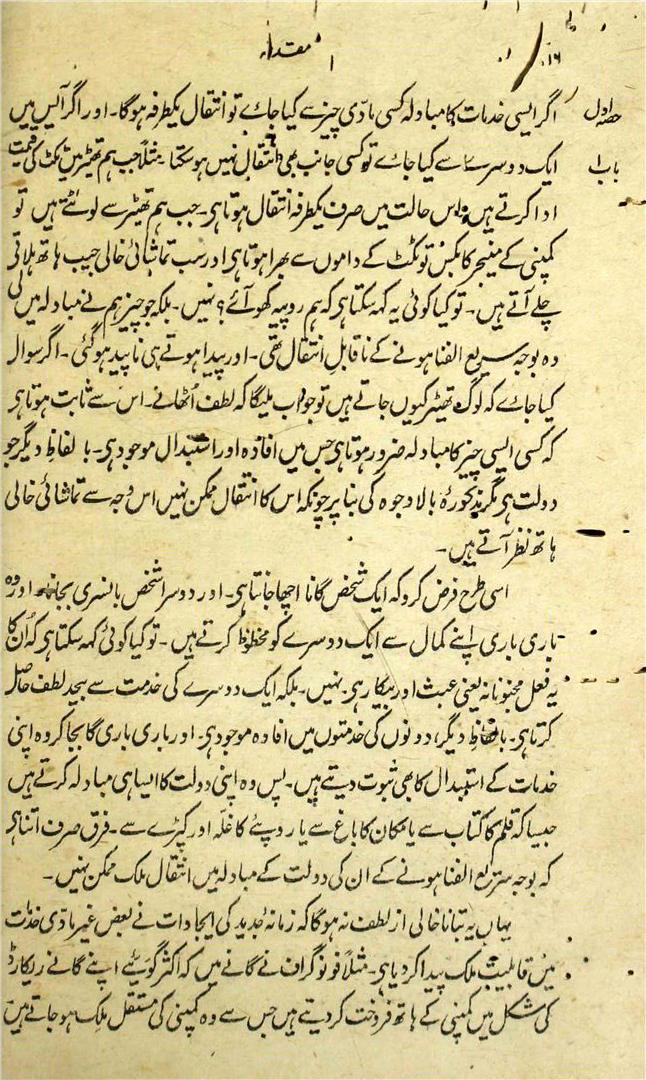 ۱۶
مقدمہ
حصہ اول
باب ۱
اگر ایسی خدمات کا مبادلہ کسی مادّی چیز سے کیا جائے تو انتقال یکطرفہ ہوگا۔ اور اگر آپس میں
ایک دوسرے سے کیا جائے تو کسی جانب بھی انتقال نہیں ہو سکتا۔ مثلاً جب ہم تھیٹر میں ٹکٹ کی قیمت
ادا کرتے ہیں۔ اس حالت میں صرف یکطرفہ انتقال ہوتا ہی۔ جب ہم تھیٹر سے لوٹتے ہیں تو
کمپنی کے منیجر کا بکس تو ٹکٹ کے داموں سے بھرا ہوتا ہی اور سب تماشائی خالی جیب ہاتھ ہلاتے
چلے آتے ہیں۔ تو کیا کوئی یہ کہہ سکتا ہی کہ ہم روپیہ کھو آئے؟ نہیں۔ بلکہ جو چیز ہم نے مبادلہ میں لی
وہ بوجہ سریع الفنا ہونے کے ناقابل انتقال تھی۔ اور پیدا ہوتے ہی ناپید ہوگئی۔ اگر سوال
کیا جائے کہ لوگ تھیٹر کیوں جاتے ہیں تو جواب ملیگا کہ لطف اُٹھانے۔ اس سے ثابت ہوتا ہی
کہ کسی ایسی چیز کا مبادلہ ضرور ہوتا ہی جس میں افادہ اور استبدال موجود ہی۔ بالفاظ دیگر جو
دولت ہی مگر مذکورۂ بالا وجوہ کی بنا پر چونکہ اس کا انتقال ممکن نہیں اس وجہ سے تماشائی خالی
ہاتھ نظر آتے ہیں۔
اسی طرح فرض کرو کہ ایک شخص گانا اچھا جانتا ہی۔ اور دوسرا شخص بانسری بجانا۔ اور وہ
باری باری اپنے کمال سے ایک دوسرے کو محظوظ کرتے ہیں۔ تو کیا کوئی کہہ سکتا ہی کہ اُن کا
یہ فعل مجنونانہ یعنی عبث اور بیکار ہی۔ نہیں۔ بلکہ ایک دوسرے کی خدمت سے بیحد لطف حاصل
کرتا ہی۔ بالفاظ دیگر، دونوں کی خدمتوں میں افادہ موجود ہی۔ اور باری باری گا بجا کر وہ اپنی
خدمات کے استبدال کا بھی ثبوت دیتے ہیں۔ پس وہ اپنی دولت کا ایسا ہی مبادلہ کرتے ہیں
جیسا کہ قلم کا کتاب سے یا مکان کا باغ سے یا روپئے کا غلہ اور کپڑے سے۔ فرق صرف اتنا ہی
کہ بوجہ سریع الفنا ہونے کے ان کی دولت کے مبادلہ میں انتقال ملک ممکن نہیں۔
یہاں یہ بتانا خالی از لطف نہ ہوگا کہ زمانہ جدید کی ایجادات نے بعض غیر مادّی خدمات
میں قابلیت ملک پیدا کر دیا ہی۔ مثلاً فونوگراف نے گانے میں کہ اکثر گویّے اپنے گانے ریکارڈ
کی شکل میں کمپنی کے ہاتھ فروخت کر دیتے ہیں جس سے وہ کمپنی کی مستقل ملک ہو جاتے ہیں